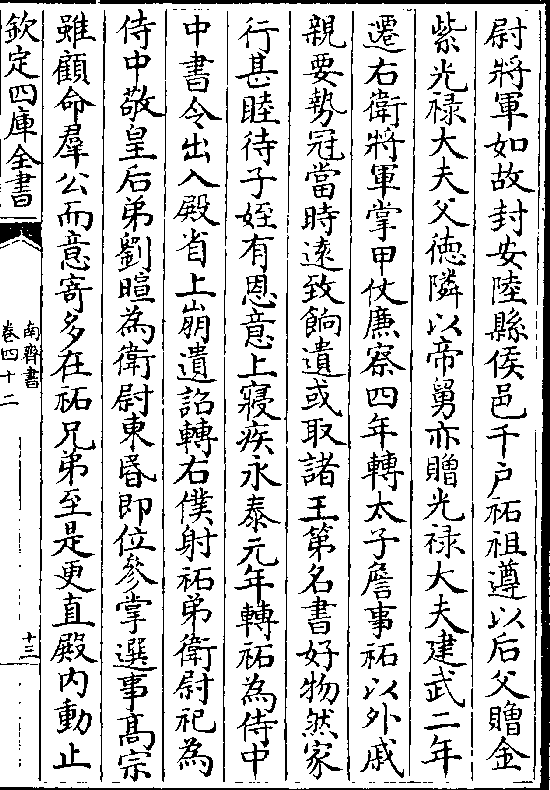 尉將軍如故封安陸縣侯邑千户祏祖遵以后父贈金
紫光禄大夫父徳隣以帝舅亦贈光禄大夫建武二年
遷右衛將軍掌甲仗廉察四年轉太子詹事祏以外戚
親要勢冠當時逺致餉遺或取諸王第名書好物然家
行甚睦待子姪有恩意上寢疾永泰元年轉祏為侍中
中書令出入殿省上崩遺詔轉右僕射祏弟衛尉祀為
侍中敬皇后弟劉暄為衛尉東昏即位參掌選事髙宗
雖顧命羣公而意寄多在祏兄弟至是更直殿内動止
欽定四庫全書
南齊書
卷四十二
十三